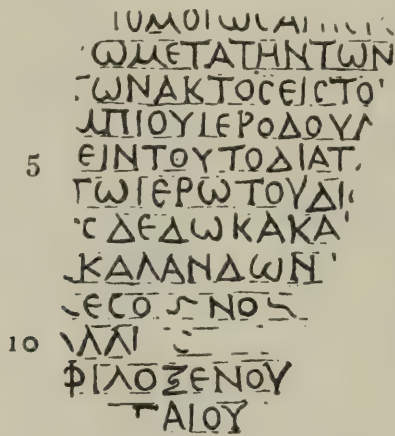 ΜΟΙωϹΑΙ
ωΜΕΤΑΤΗΝΤωΝ
ΓωΝΑΚΤΟϹΕΙϹΤΟ
ΜΠΙΟΥΙΕΡΟΔΟΥΛ
5 ΕΙΝΤΟΥΤΟΔΙΑΤ
ΤωΙΕΡωΤΟΥΔΙ
ϹΔΕΔωΚΑΚΑ
ΚΑΛΑΝΔωΝ
ΕϹΟ ΝΟ
10 ΛΛΙ
ΦΙΛΟΞΕΝΟΥ
ΤΑΙΟΥ